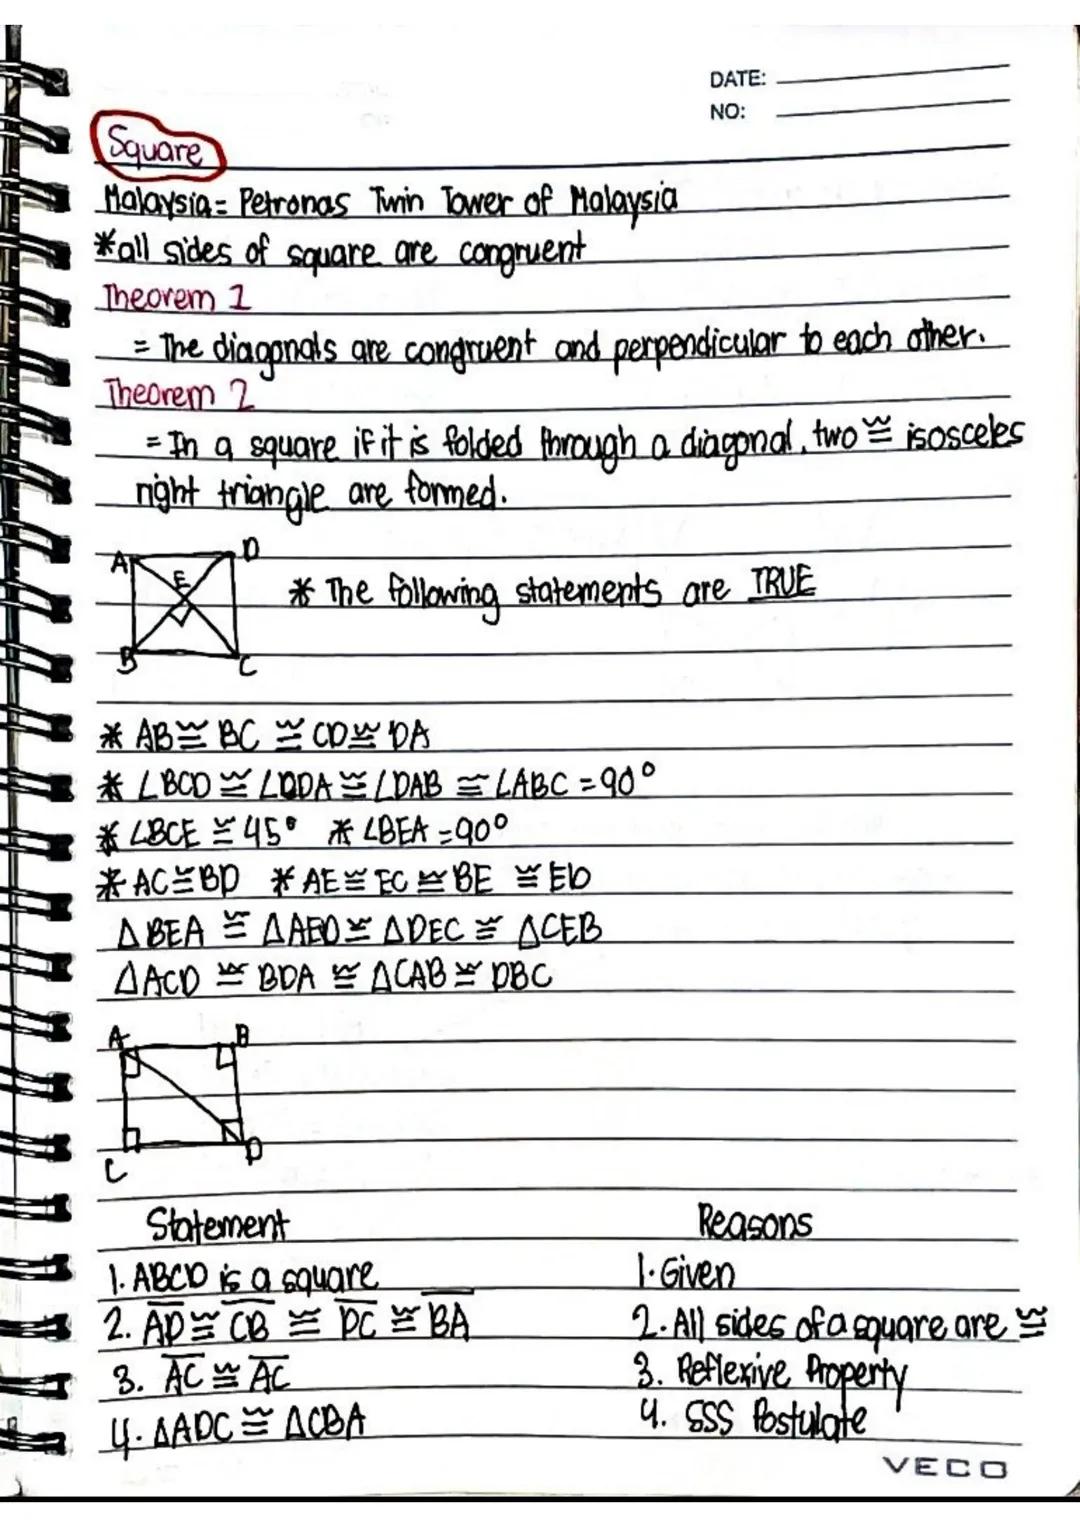 DATE:
NO:
Square
Malaysia = Petronas Twin Tower of Malaysia
*all sides of square are congruent
Theorem 1
= The diagonals are congruent and perpendicular to each other.
Theorem 2
= In a square if it is folded through a diagonal, two ≅ isosceles
right triangle are formed.
A D
E
* The following statements are TRUE
B C
* AB ≅ BC ≅ CD ≅ DA
* ∠BCD ≅ ∠DDA ≅ ∠DAB ≅ ∠ABC = 90°
* ∠BCE ≅ 45° * ∠BEA = 90°
* AC ≅ BD * AE ≅ EC ≅ BE ≅ ED
△BEA ≅ △AED ≅ △DEC ≅ △CEB
△ACD ≅ BDA ≅ △CAB ≅ DBC
A B
C D
Statement Reasons
1. ABCD is a square 1. Given
2. A̅D̅ ≅ C̅B̅ ≅ D̅C̅ ≅ B̅A̅ 2. All sides of a square are ≅
3. A̅C̅ ≅ A̅C̅ 3. Reflexive Property
4. △ADC ≅ △CBA 4. SSS Postulate
VECO